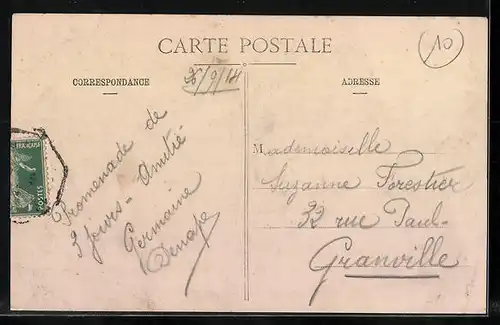 CARTE POSTALE
10
CORRESPONDANCE
26/9/14
ADRESSE
Promenade de
3 jours - Amitié
Germaine
Mademoiselle
Suzanne Forestier
32 rue Paul-
Granville
FRANÇAISE
POSTES